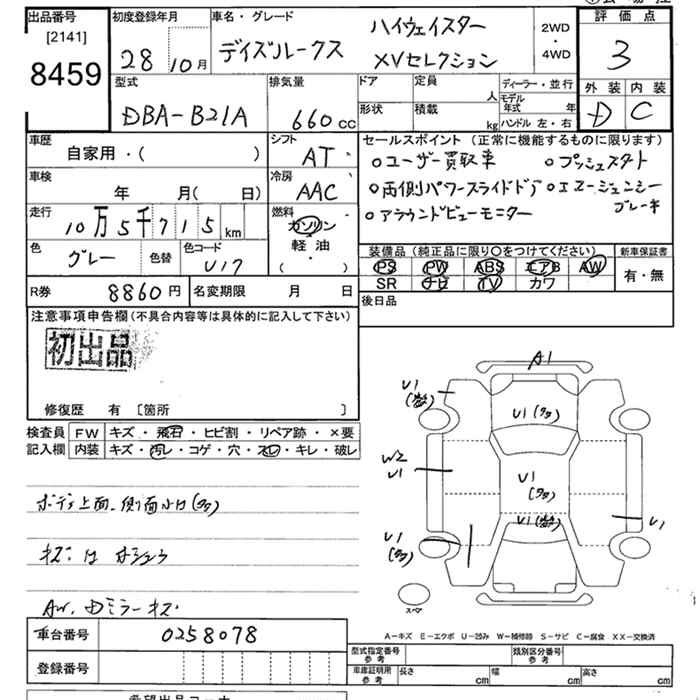 出品番号
[2141]
8459
初度登録年月
28 10月
車名・グレード
デイズルークス
ハイウェイスター
XVセレクション
2WD
・
4WD
評価点
3
外装 内装
D C
型式
DBA-B21A
排気量
660cc
ドア
定員
人
形状
積載
kg
ディーラー・並行
モデル年式 年
ハンドル 左・右
車歴
自家用・( )
シフト
AT
車検
年 月( 日)
冷房
AAC
走行
10万5千715km
燃料
ガソリン
軽油
( )
色
グレー
色替
色コード
セールスポイント (正常に機能するものに限ります)
○ユーザー買取車 ○プッシュスタート
○両側パワースライドドア ○エマージェンシー
ブレーキ
○アラウンドビューモニター
装備品(純正品に限り○をつけてください)
PS PW ABS エアB AW
SR ナビ TV カワ
新車保証書
有・無
R券
8860円
名変期限 月 日
後日品
注意事項申告欄(不具合内容等は具体的に記入して下さい)
初出品
修復歴 有 [箇所 ]
検査員
記入欄
FW キズ・飛石・ヒビ割・リペア跡・×要
内装 キズ・汚レ・コゲ・穴・スレ・キレ・破レ
ボディ上面、側面小U(多)
AW、Dミラーキズ
A1
U1
U1(多)
W2
U1
U1
(多)
U1
U1
(多)
スペア
A-キズ E-エクボ U-凹み W-補修跡 S-サビ C-腐食 XX-交換済
車台番号
0258078
登録番号
型式指定番号
参考
類別区分番号
参考
車庫証明用
参考
長さ cm
幅 cm
高さ cm